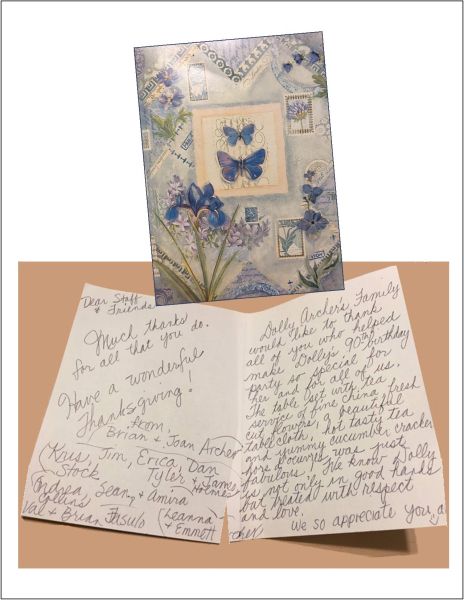 Dear Staff
& Friends
Much thanks
for all that you do.
Have a wonderful
Thanksgiving!
from,
Brian & Joan Archer
Kris, Tim, Erica, Dan
Stock Tyler & James
Holmes
Andrea Sean, & Amira
Collins
Val & Brian
Leanna
& Emmett
Dolly Archer's Family
would like to thank
all of you who helped
make Dolly's 90th birthday
party so special for
her and for all of us.
The table set with tea
service of fine china, fresh
cut flowers, a beautiful
table cloth, hot tasty tea
and yummy cucumber cracker
was just
fabulous. We know Dolly
is not only in good hands
but treated with respect
and love.
We so appreciate you,